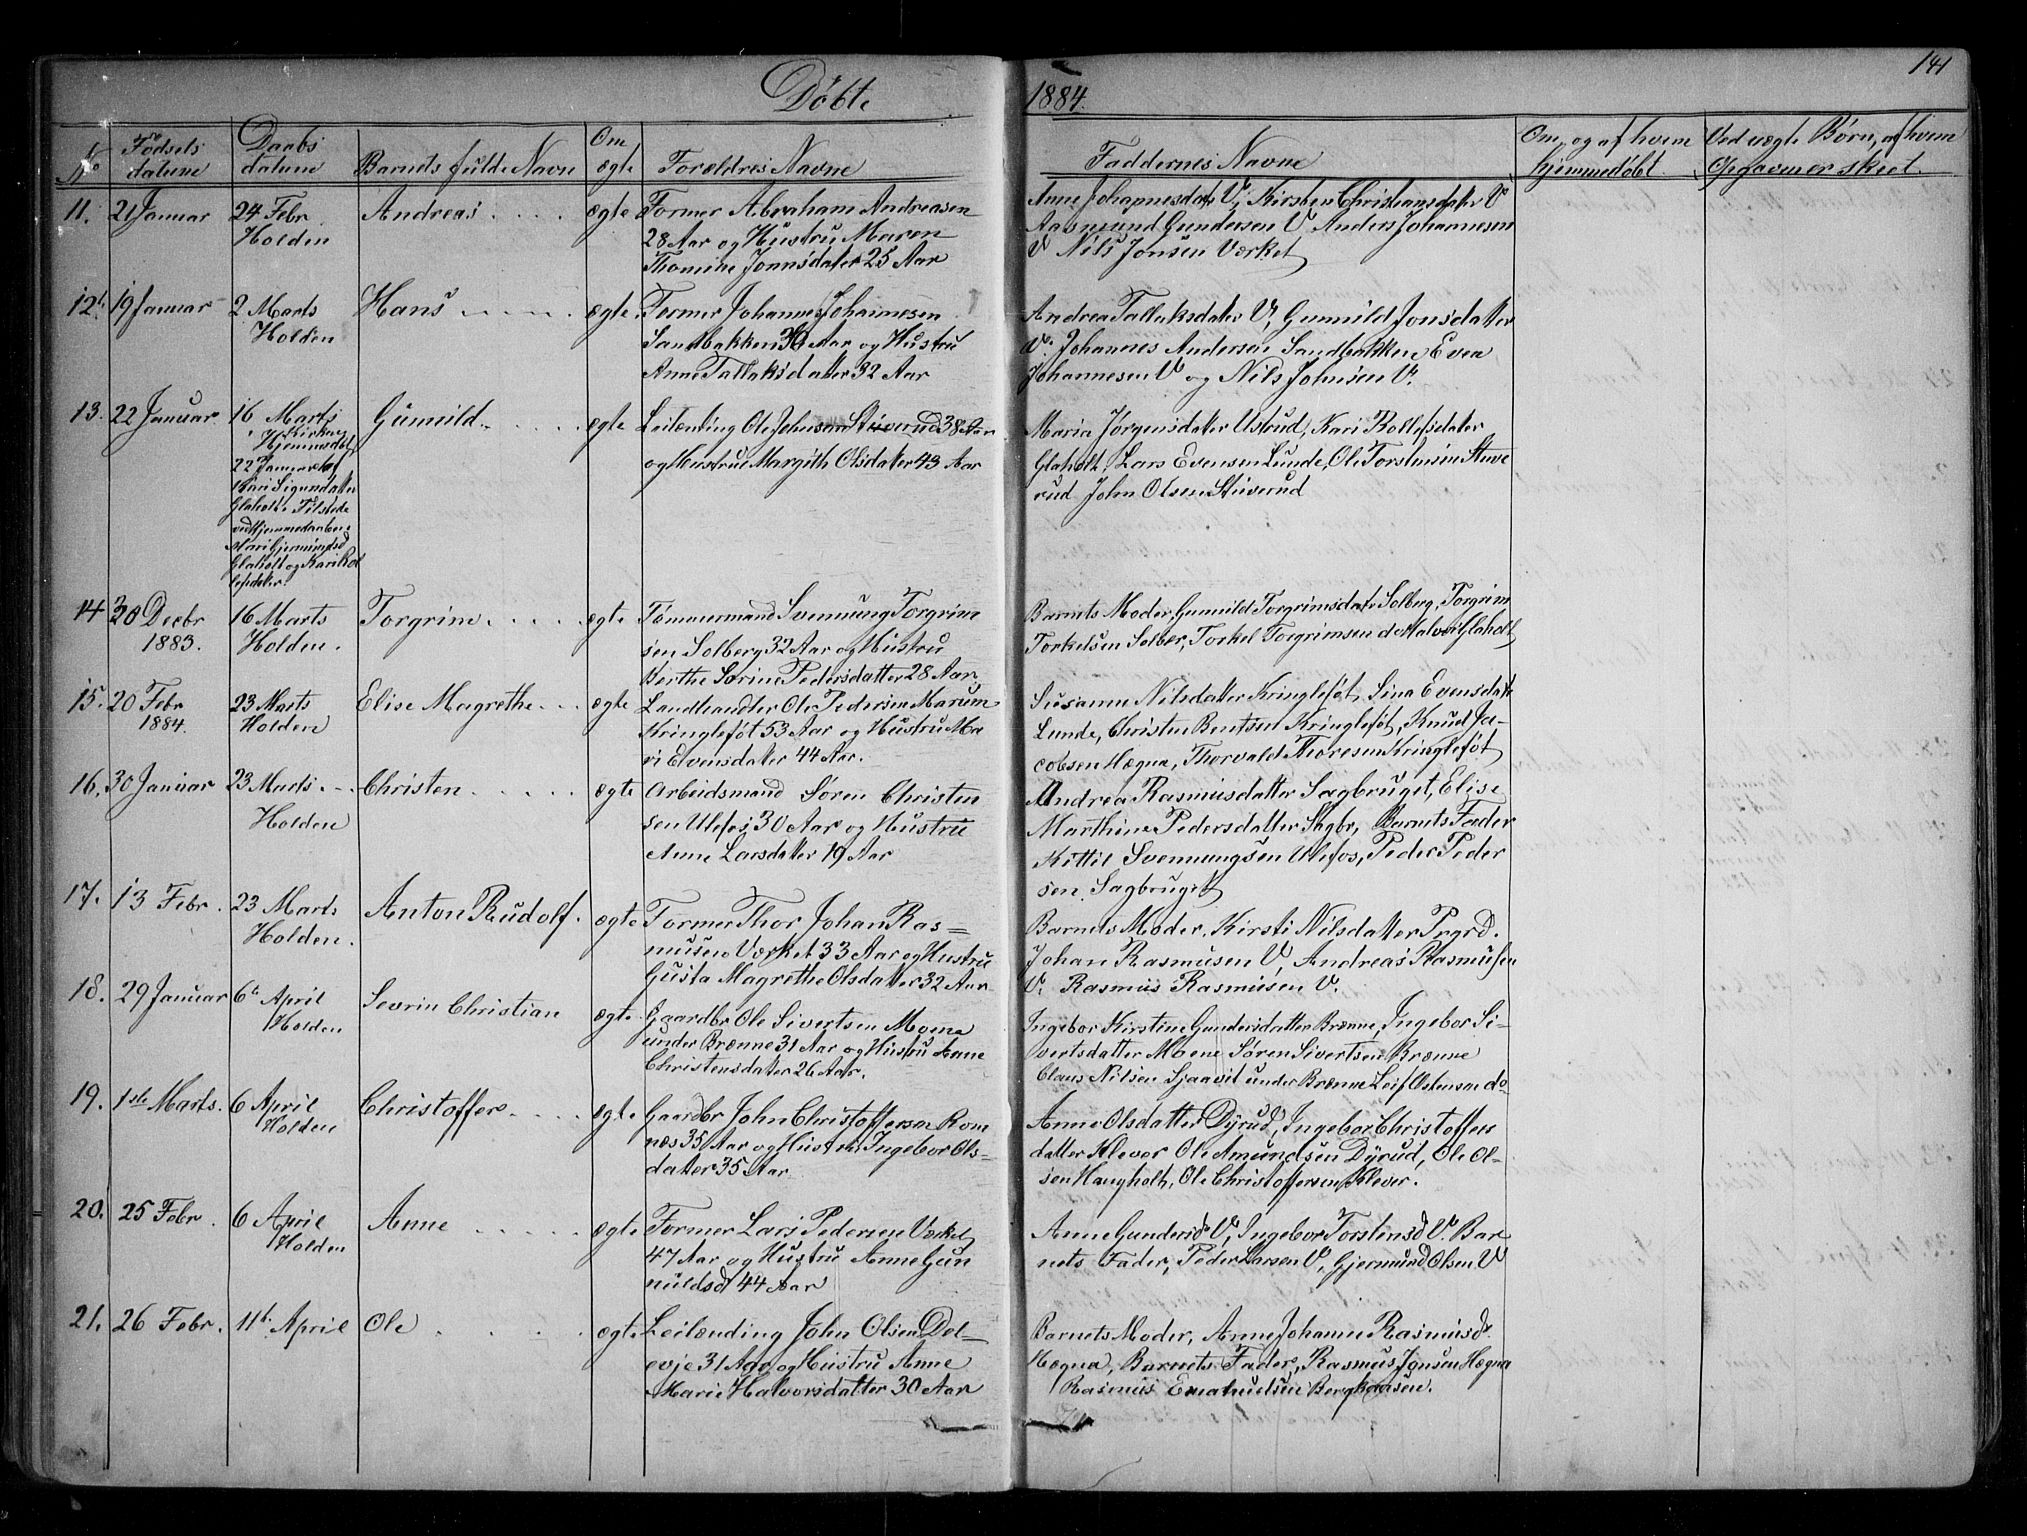 141
Døbte 1884.
No
Fødsels datum
Daabs datum
Barnets fulde Navn
Om ægte
Forældres Navne
Faddernes Navne
Om, og af hvem hjemmedøbt.
Ved uægte Børn, af hvem Opgaven er skeet.
11. 21 Januar
24 Febr Holden
Andreas
ægte
Former Abraham Andreasen
28 Aar og Hustru Maren
Thomine Jonnsdater 25 Aar
Anne Johannesdater V, Kirsten Christiansdater V
Aasmund Gundersen V Anders Johannesen
V Nils Jonsen Værket
12. 19 Januar
2 Marts Holden
Hans
ægte
Former Johannes Johannesen
Sandbakken 36 Aar og Hustru
Anne Tallaksdater 32 Aar
Andrea Tallaksdater V, Gunnild Jonsdatter
V. Johannes Andersen Sandbakken Even
Johannesen V og Nils Johnsen V.
13. 22 Januar
16 Marts
i Kirken
Hjemmedøbt
22 Januar af
Kari Sigurdater
Glaholt. Tilstede
ved Hjemmedaaben:
Mari Gjermundsd
Glaholt og Kari Rol
lefsdater.
Gunnild
ægte
Leilænding Ole Johnsen Stuverud 38 Aar
og Hustrue Margith Olsdater 43 Aar
Maria Jørgensdater Ustrud, Kari Rollefsdater
Glaholt, Lars Evensen Lunde, Ole Torstensen Stuve
rud John Olsen Stuverud
14 30 Decbr 1883.
16 Marts Holden.
Torgrim
ægte
Tømmermand Svennung Torgrim
sen Solberg 32 Aar og Hustru
Berthe Sørine Pedersdatter 28 Aar
Barnets Moder, Gunnild Torgrimsdater Solberg, Torgrim
Torkelsen Solber, Torkel Torgrimsen do Halvor Glaholt
15. 20 Febr 1884.
23 Marts Holden
Elise Magrethe
ægte
Landhandler Ole Pedersen Marum
Kringlefot 53 Aar og Hustru Ma
ri Evensdater 44 Aar.
Susanne Nilsdatter Kringlefot, Lina Evensdater
Lunde, Christen Bentsen Kringlefot, Knud Ja-
cobsen Hægna, Thorvald Thoresen Kringlefot
16. 30 Januar
23 Marts Holden
Christen
ægte
Arbeidsmand Søren Christen
sen Ulefos 30 Aar og Hustru
Anne Larsdatter 19 Aar
Andrea Rasmusdatter Sagbruget, Elise
Marthine Pedersdatter Sagbr, Barnets Fader
Kittil Svennungsen Ulefos, Peder Peder
sen Sagbruget
17. 13 Febr.
23 Marts Holden.
Anton Rudolf.
ægte
Former Thor Johan Ras=
musen Værket 33 Aar og Hustru
Gusta Magrethe Olsdatter 32 Aar
Barnets Moder, Kirsti Nilsdatter Prgrd.
Johan Rasmusen V, Andreas Rasmusen
V. Rasmus Rasmusen V.
18. 29 Januar
6te April Holden
Sevrin Christian
ægte
Gaardbr Ole Sivertsen Moene
under Brænne 31 Aar og Hustru Anne
Christensdater 26 Aar.
Ingebor Kirstine Gundersdatter Brænne, Ingebor Si-
vertsdatter Moene Søren Sivertsen Brænne
Claus Nilsen Sjaavit under Brænne Leif Ostensen do
19. 1ste Marts.
6 April Holden
Christoffer
ægte
Gaardbr John Christoffersen Rom
næs 35 Aar og Hustru Ingebor Ols=
dater 35 Aar
Anne Olsdatter Dyrud, Ingebor Christoffers
datter Klever Ole Amundsen Dyrud, Ole Ol-
sen Haugholt, Ole Christoffersen Klever.
20. 25 Febr.
6 April Holden
Anne
ægte
Former Lars Pedersen Værket
47 Aar og Hustru Anne Gun
nuldsd 44 Aar
Anne Gundersd V, Ingebor Torstensd V. Bar
nets Fader, Peder Larsen V, Gjermund Olsen V
21. 26 Febr.
11te April
Ole
ægte
Leilænding John Olsen Dol=
evje 31 Aar og Hustru Anne
Marie Halvorsdatter 30 Aar
Barnets Moder, Anne Johanne Rasmusd.
Hægna, Barnets Fader, Rasmus Jonsen Hægna
Rasmus Emanuelsen Bergkaasen.